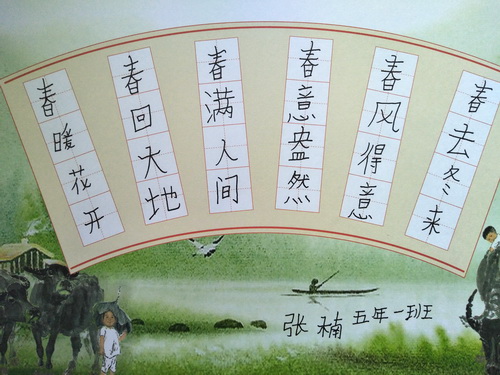 春暖花开
春回大地
春满人间
春意盎然
春风得意
春去冬来
张楠 五年一班